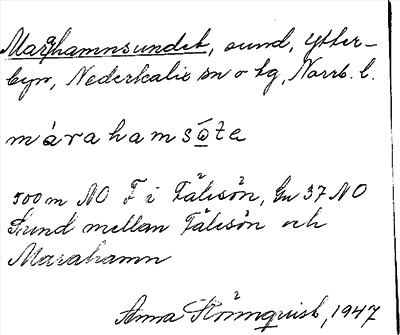 Marahamnsundet, sund, Ytter-
byn, Nederkalix sn o tg, Norrb. l.
máraham sω̄te
500 m NO F i Fälesön, Gu 37 NO
Sund mellan Fälesön och
Marahamn
Anna Strömqvist, 1947